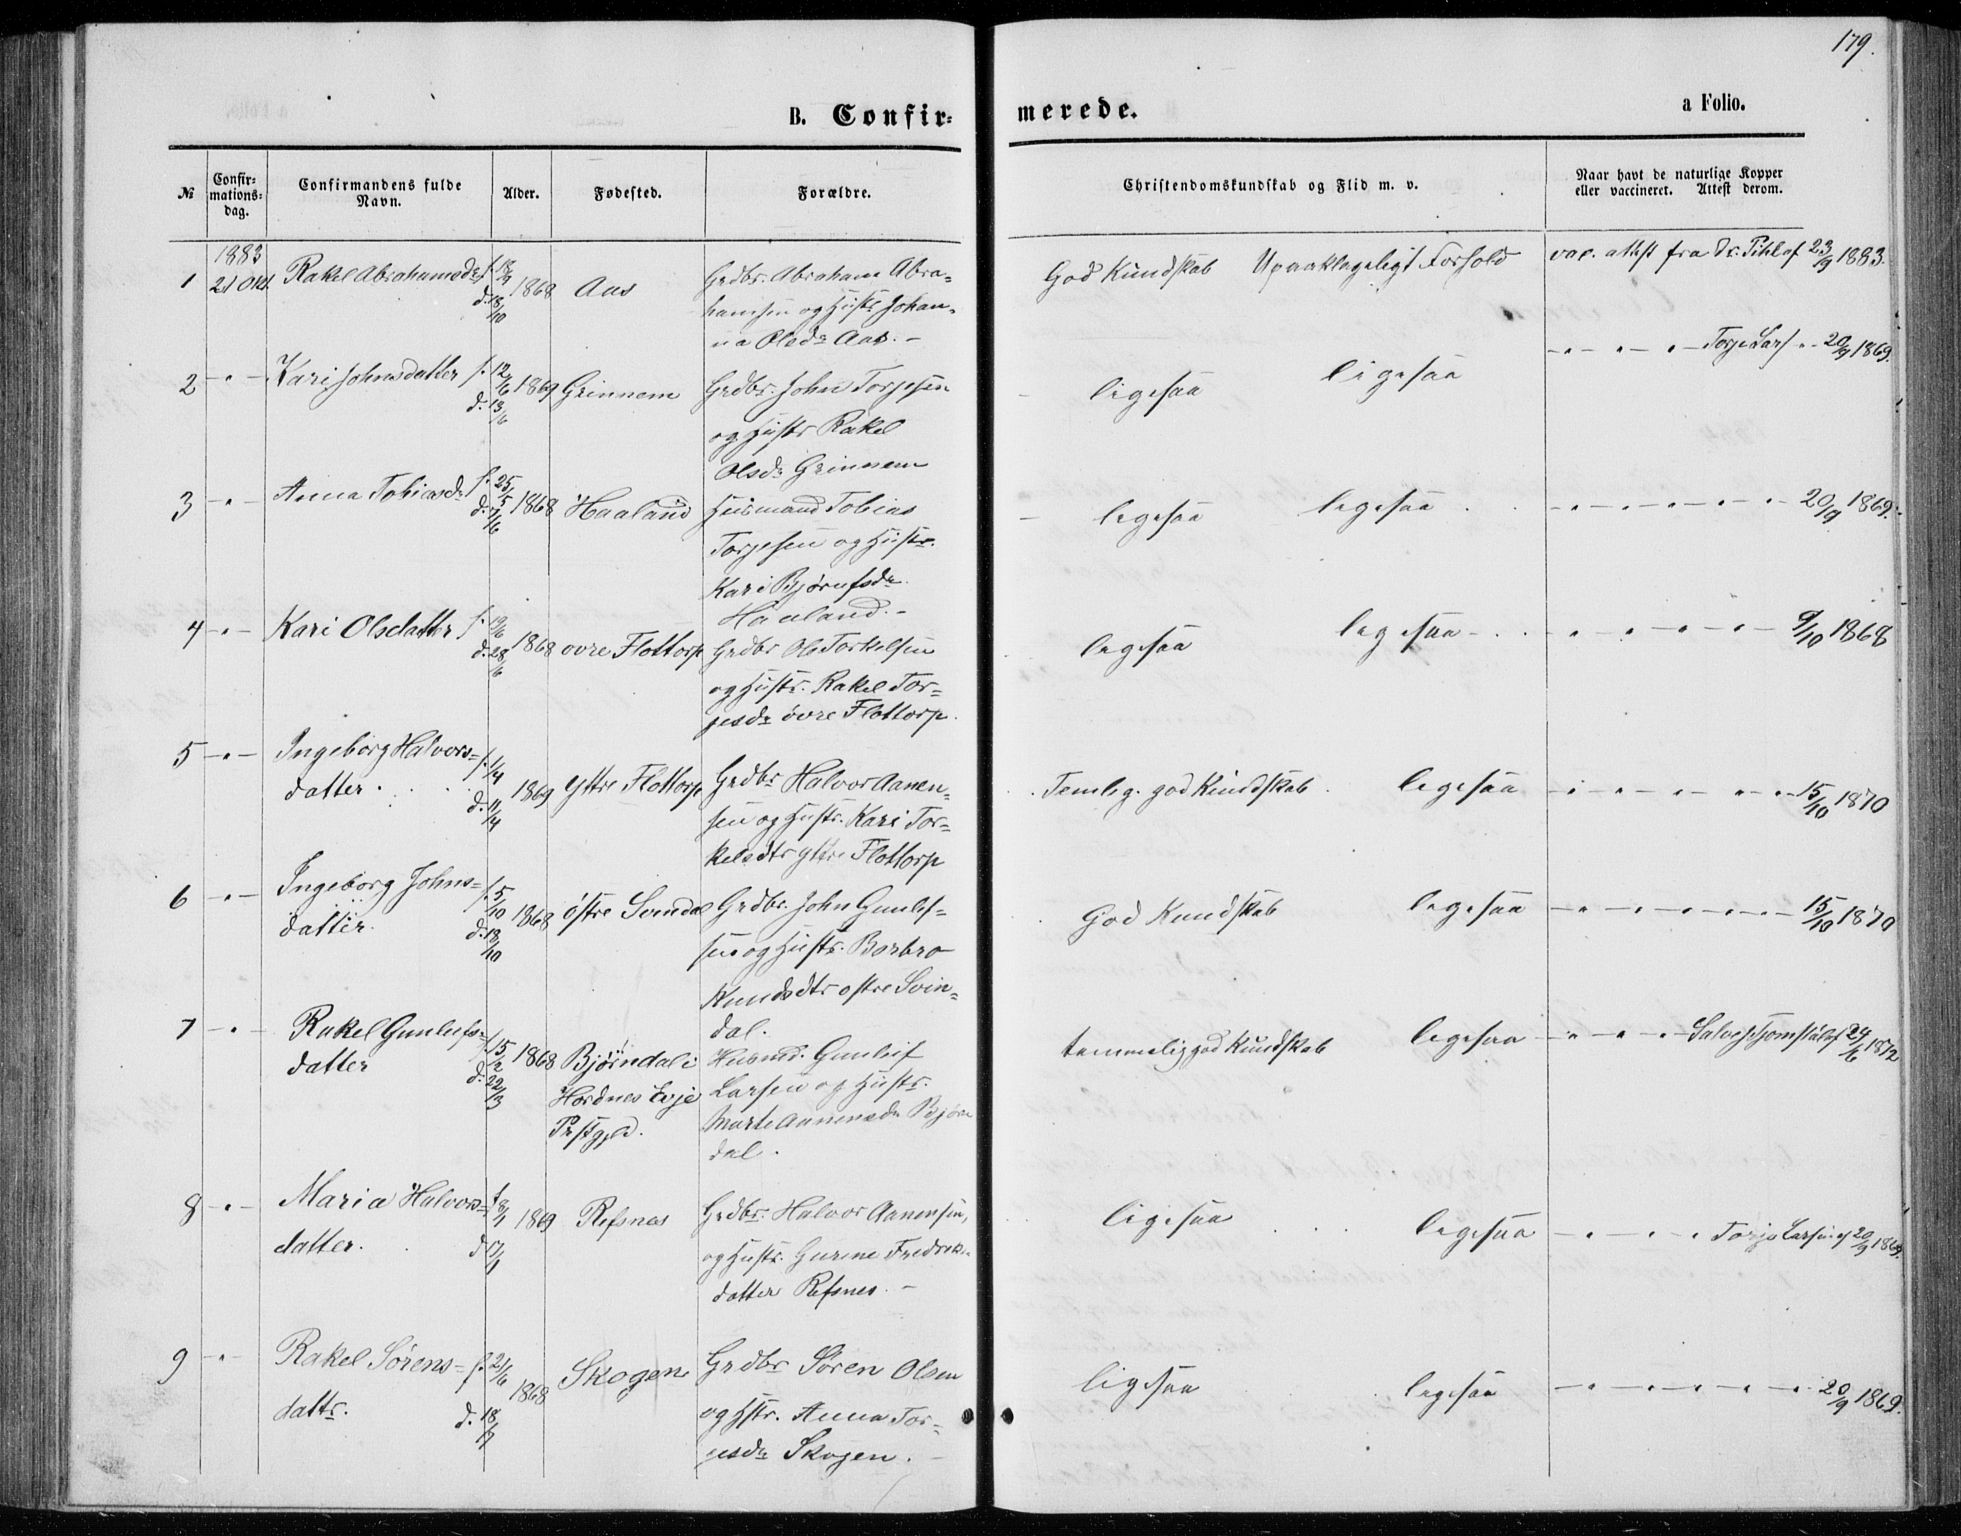 179.
B. Confir-
merede.
a Folio.
№
Confir-
mations-
dag.
Confirmandens fulde
Navn.
Alder.
Fødested.
Forældre.
Christendomskundskab og Flid m. v.
Naar havt de naturlige Kopper
eller vaccineret. Attest derom.
1883
1 21 Okt. Rakel Abrahamsdr f. 1868 Aas Grdbr. Abraham Abra-
d. 18/10 hamsen og Hustr. Johan-
na Olsdr Aas. -
God Kundskab Upaaklageligt Forhold vac. attest fra Dr. Pihl af 23/9 1883.
2 - " - Kari Johnsdatter f. 12/6 1869 Grinnem Grdbr. John Torjesen
d. 13/6
og Hustr Rakel
Olsdr Grinnem
ligesaa ligesaa - " - " - " - Torje Lars " 20/9 1869.
3 - " - Anna Tobiasdr f. 25/5 1868 Haaland Husmand Tobias
d. 7/6
Torjesen og Hustr.
Kari Bjørnfsdr
Haaland. -
ligesaa ligesaa - " - " - " - " - 20/9 1869.
4 - " - Kari Olsdatter f. 19/6 1868 ovre Flottorp Grdbr Ole Torkelsen
d. 28/6
og Hustr. Rakel Tor-
jesdr övre Flottorp.
ligesaa ligesaa - " - " - " - " - 9/10 1868
5 - " - Ingeborg Halvors- f. 1/4
datter. d. 11/4 1869 Yttre Flottorp Grdbr Halvor Aanen-
sen og Hustr. Kari Tor-
kelsdtr yttre Flottorp
Temlig god Kundskab ligesaa - " - " - " - " - 15/10 1870
6 - " - Ingeborg Johns- f. 5/10 1868 östre Svindal Grdbr. John Gunlef-
datter. d. 18/10
sen og Hustr. Barbro
Knudsdtr ostre Svin-
dal.
God Kundskab ligesaa - " - " - " - " - 15/10 1870
7 - " - Rakel Gunleifs- f. 15/2 1868 Bjørndal i Husmd. Gunleif
datter d. 22/3
Hordnes Evje Larsen og Hustr.
Prstgjld. Marte Aanensdr Bjørn
dal.
temmelig god Kundskab ligesaa - " - " - " - Salve Tjomstøl af 24/6 1872
8 - " - Maria Halvors- f. 8/1 1869 Refsnes Grdbr. Halvor Aanensen,
datter. d. 17/1
og Hustr. Gurine Fredrik-
datter Refsnes. -
ligesaa ligesaa - " - " - " Torje Larsen af 20/9 1869.
9 - " - Rakel Sørens- f. 21/6 1868 Skogen Grdbr Sören Olsen
dattr. d. 18/7
og Hstr. Anna Tor-
jesdr Skogen. -
ligesaa ligesaa - " - " - " - " - 20/9 1869.